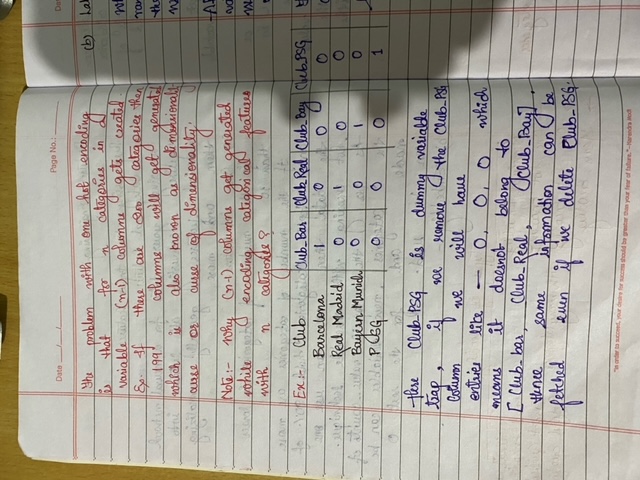 Date ___/___/___ Page No.: ______
The problem with one hot encoding
is that for n categories in a
variable (n-1) columns gets created
Ex. If there are 200 categories then
199 columns will get generated
which is also known as dimensionality
curse or curse of dimensionality.
Note:- Why (n-1) columns get generated
while encoding categorical features
with n categories?
Ex:- Club Club_Bar Club_Real Club_Bay Club_PSG
Barcelona 1 0 0 0
Real Madrid 0 1 0 0
Bayern Munich 0 0 1 0
PSG 0 0 0 1
Here Club_PSG is dummy variable
trap, if we remove the Club_PSG
column we will have
entries like — 0, 0, 0 which
means it doesnot belong to
[Club_bar, Club_Real, Club_Bay].
Hence same information can be
fetched even if we delete Club_PSG.
"In order to succeed, your desire for success should be greater than your fear of failure." - Narendra Modi
(b)